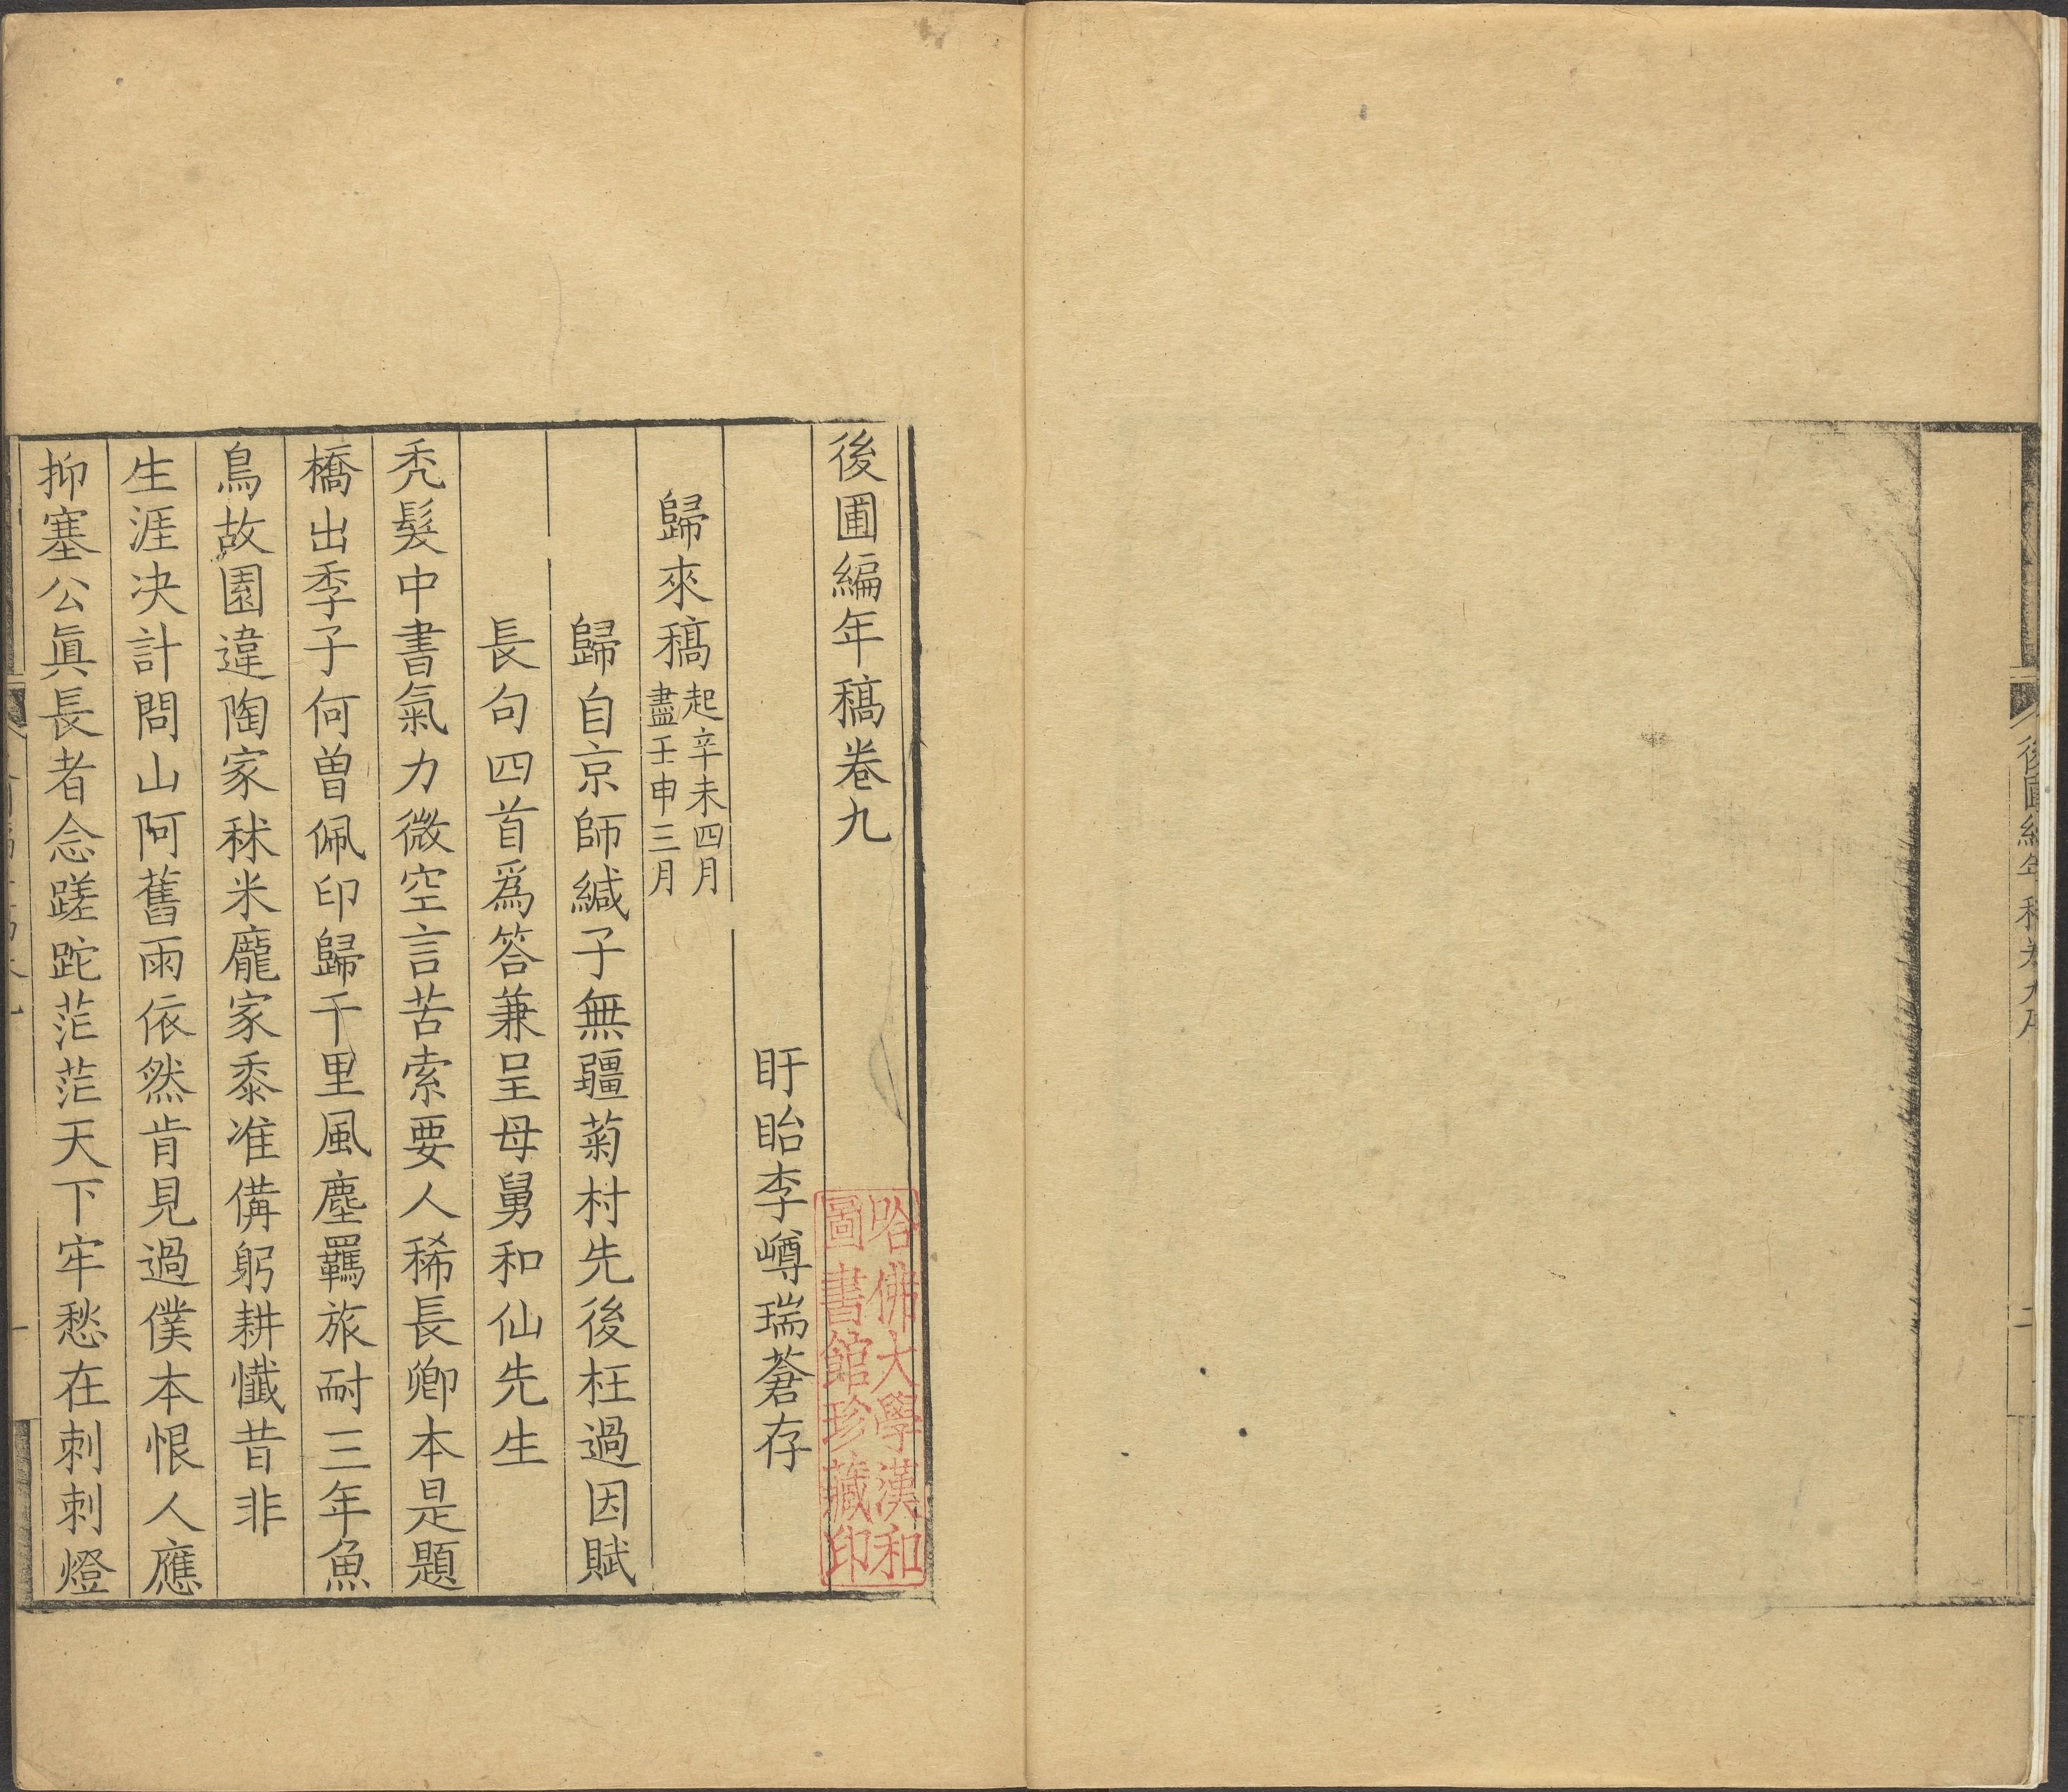 後圃編年稿卷九
盱眙李嶟瑞蒼存
歸來稿 起辛未四月
盡壬申三月
歸自京師緘子無疆菊村先後枉過因賦
長句四首爲答兼呈母舅和仙先生
禿髮中書氣力微空言苦索要人稀長卿本是題
橋出季子何曽佩印歸千里風塵羈旅耐三年魚
鳥故園違陶家秫米龐家黍准備躬耕懺昔非
生涯決計問山阿舊雨依然肯見過僕本恨人應
抑塞公眞長者念蹉跎茫茫天下牢愁在刺刺燈
哈佛大學漢和
圖書館珍藏印
後圃編年稿卷九序
二